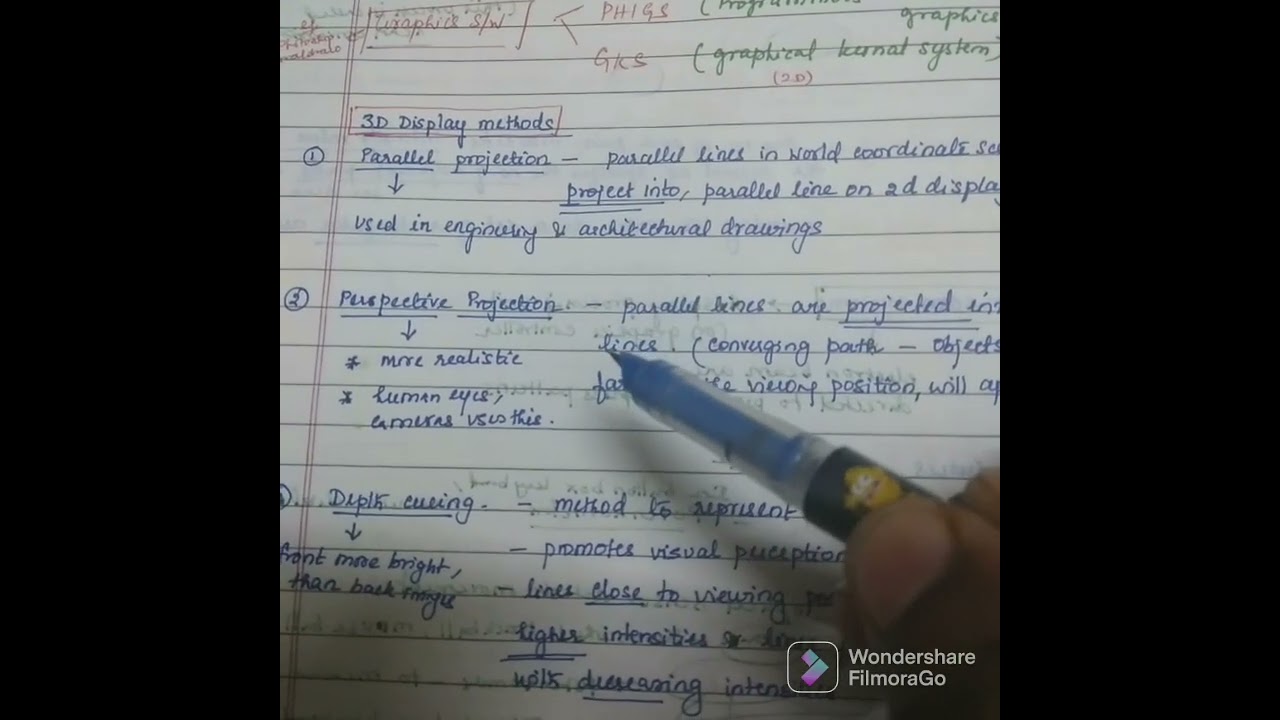 Graphics S/W
PHIGS
graphics
GKS (graphical kernal system)
(2D)
3D Display methods
① Parallel projection – parallel lines in world coordinate
project into, parallel line on 2d displa
used in engineering & architectural drawings
② Perspective Projection. – parallel lines are projected in
lines. (converging path – objects
* more realistic
viewing position, will
* human eyes,
cameras uses this.
Depth cueing. – method to represent
– promotes visual perception
front more bright,
than back images
– lines close to viewing
higher intensities
with decreasing
Wondershare
FilmoraGo